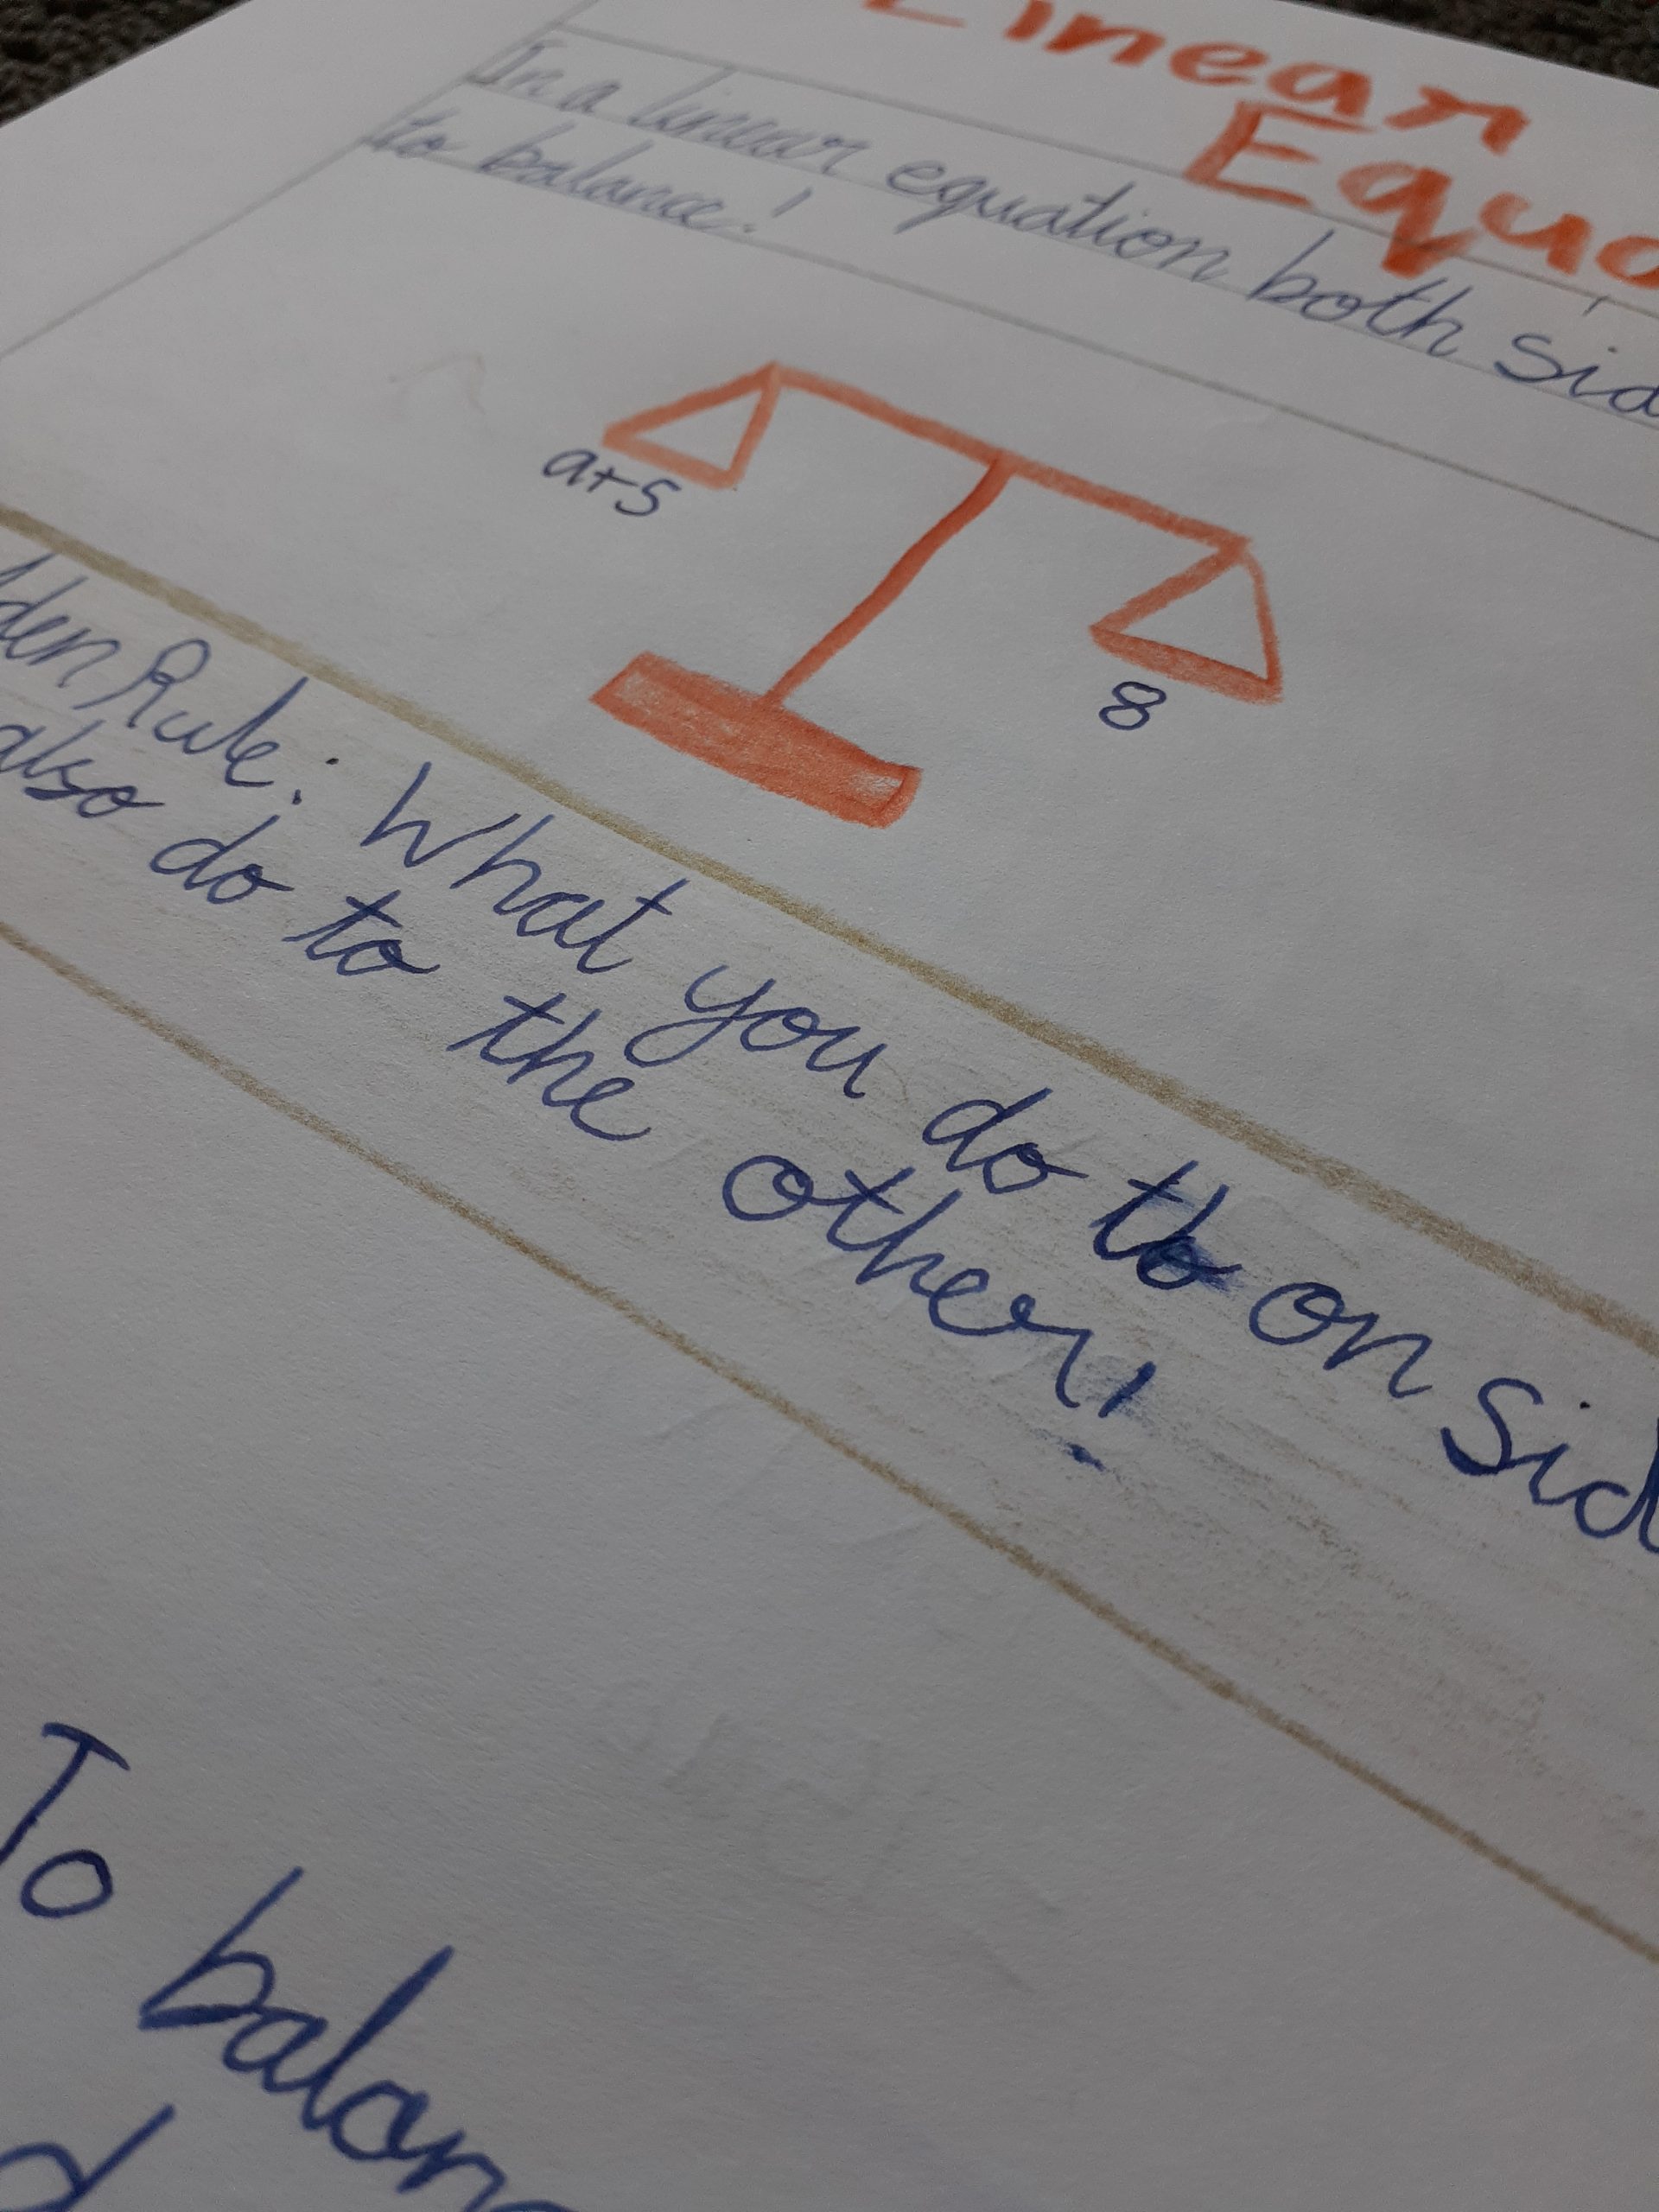 Linear
Equa
In a linear equation both sid
to balance!
a+5
8
lden Rule: What you do to on sid
also do to the other!
To balan